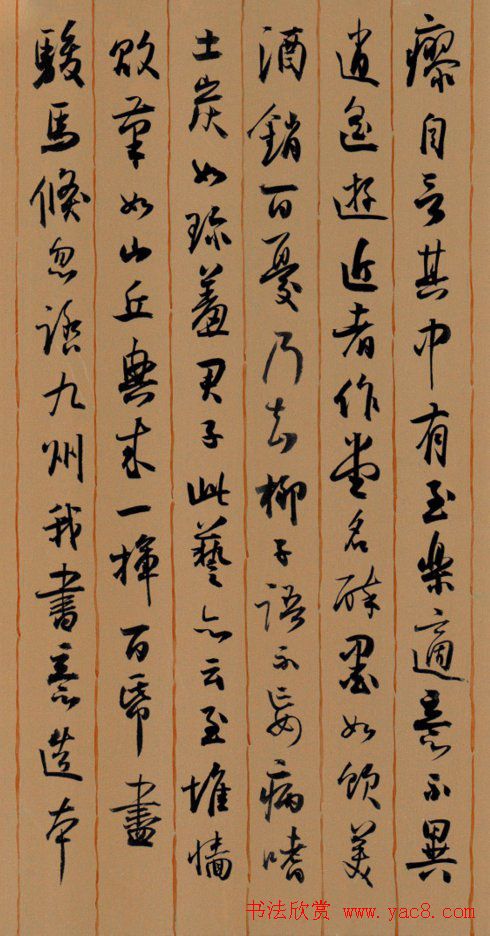 瘳自言其中有至樂適意不異
逍遙遊近者作堂名醉墨如飲美
酒銷百憂乃知柳子語不妄病嗜
土炭如珍羞君于此藝亦云至堆牆
敗筆如山丘興來一揮百帋盡
駿馬倏忽踏九州我書意造本
书法欣赏 www.yac8.com